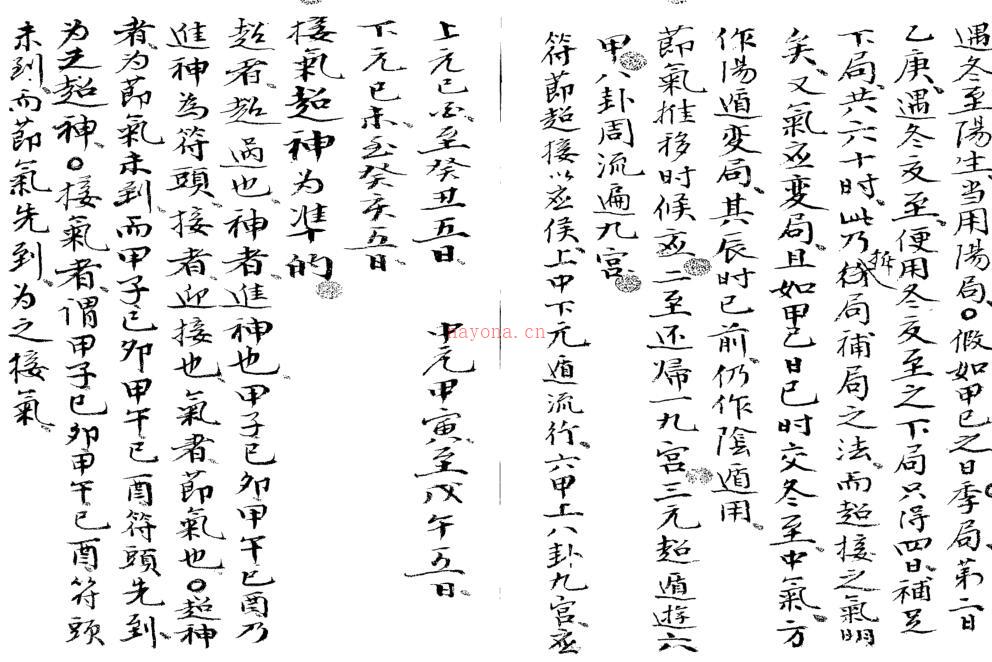 遇冬至陽生、当用陽局。假如甲己之日季局、第二日
乙庚、遇冬夏至、便用冬夏至之下局、只得四日、補足
下局、共六十時、此乃拆局補局之法、而超接之氣明
矣、又氣应变局、且如甲己日巳时交冬至中氣、方
作陽遁变局、其辰时已前、仍作陰遁用、
節氣推移时候应、二至还歸一九宫、三元超遁遊六
甲、八卦周流遍九宫、
符節超接以应候、上中下元遁流行、六甲上八卦九宫应
上元己酉至癸丑五日、 中元甲寅至戊午五日、
下元己未至癸亥五日、
接氣超神为准的
超者、超過也、神者、進神也、甲子己卯甲午己酉乃
進神为符頭、接者、迎接也、氣者、節氣也。超神
者、为節氣未到、而甲子己卯甲午己酉符頭先到、
为之超神。接氣者、謂甲子己卯甲午己酉符頭
未到、而節氣先到、为之接氣、
nayona.cn